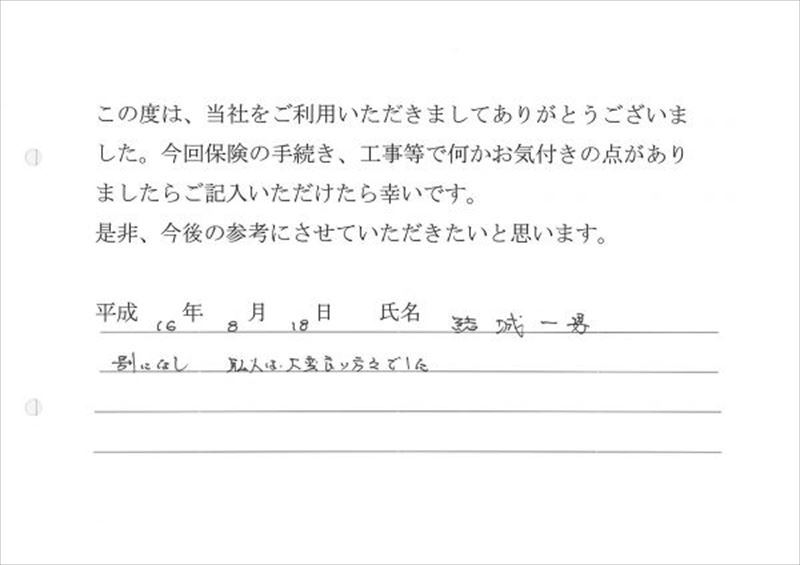 この度は、当社をご利用いただきましてありがとうございま
した。今回保険の手続き、工事等で何かお気付きの点があり
ましたらご記入いただけたら幸いです。
是非、今後の参考にさせていただきたいと思います。
平成 16 年 8 月 18 日 氏名 結城 一男
別になし 職人は大変良い方々でした